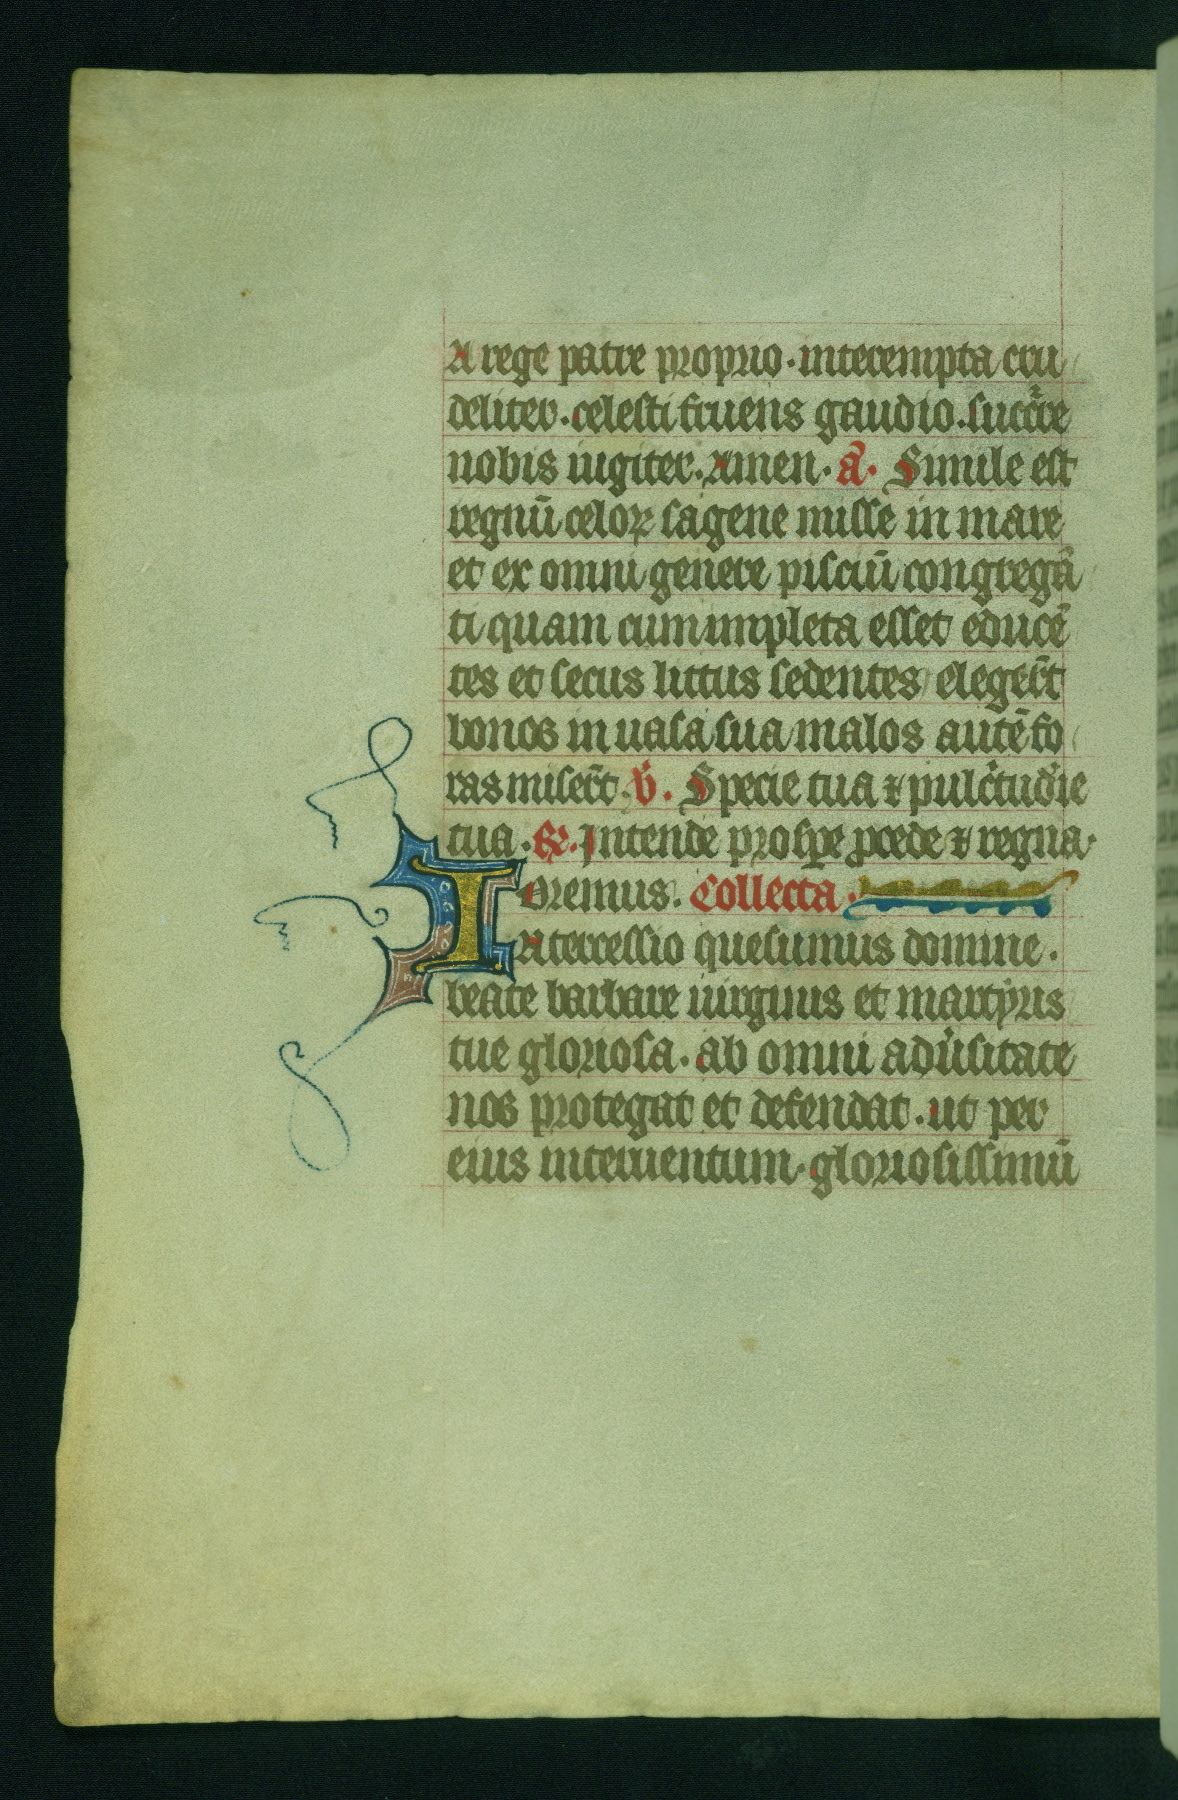 A rege patre proprio. interempta cru
deliter. celesti fruens gaudio. succ̄re
nobis iugiter. Amen. a̅. Simile est
regnū celoꝝ sagene misse in mare
et ex omni genere pisciū congregā
ti quam cum impleta esset educē
tes et secus littus sedentes eleger̄t
bonos in uasa sua malos autē fo
ras miser̄t. v̇. Specie tua ⁊ pulc̄tudīe
tua. ℞. Intende prosꝑe ꝓcede ⁊ regna.
Oremus. Collecta.
Intercessio quesumus domine.
beate barbare uirginis et martyris
tue gloriosa. ab omni adūsitate
nos protegat et defendat. ut per
eius interuentum. gloriosissimū